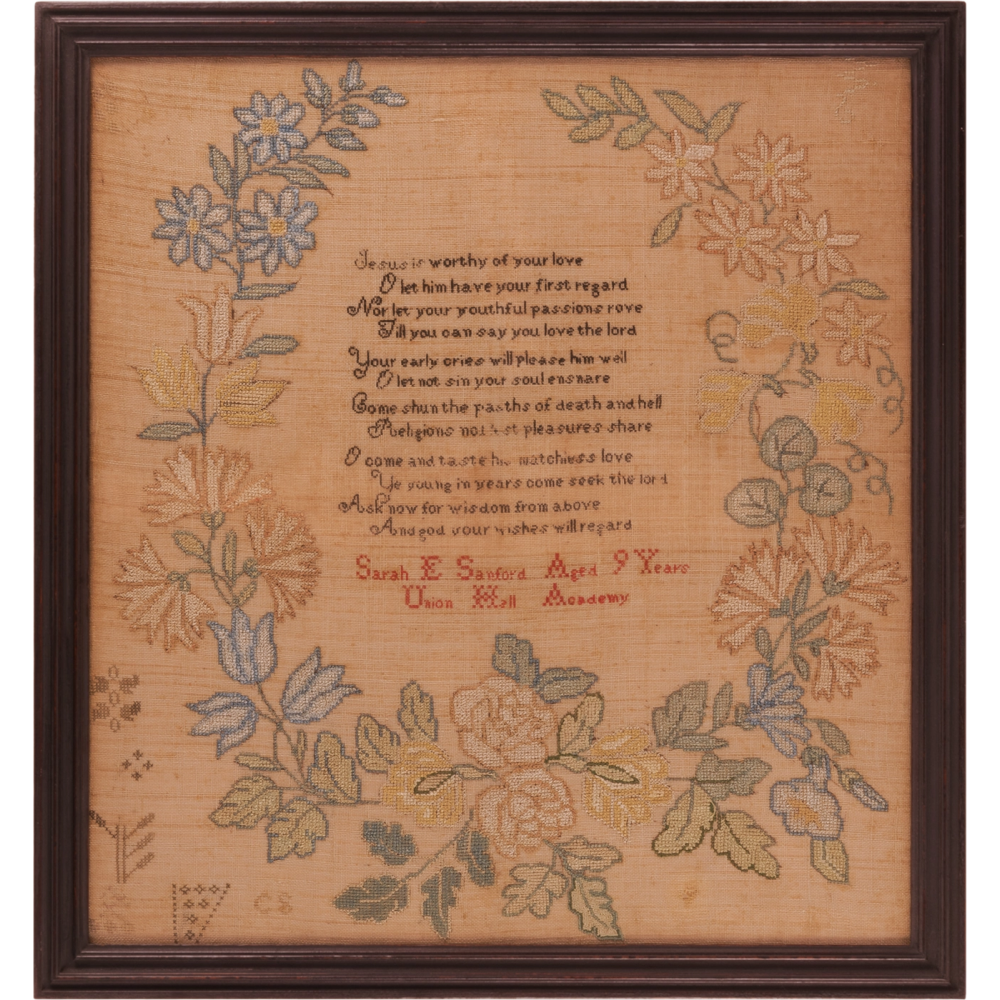 Jesus is worthy of your love
O let him have your first regard
Nor let your youthful passions rove
Till you can say you love the lord
Your early cries will please him well
O let not sin your soul ensnare
Come shun the paths of death and hell
Religions pleasures share
O come and taste his matchless love
Ye young in years come seek the lord
Ask now for wisdom from above
And god your wishes will regard
Sarah E Sanford Aged 9 Years
Union Hall Academy